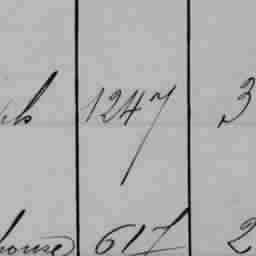 1247 3
house 617 2